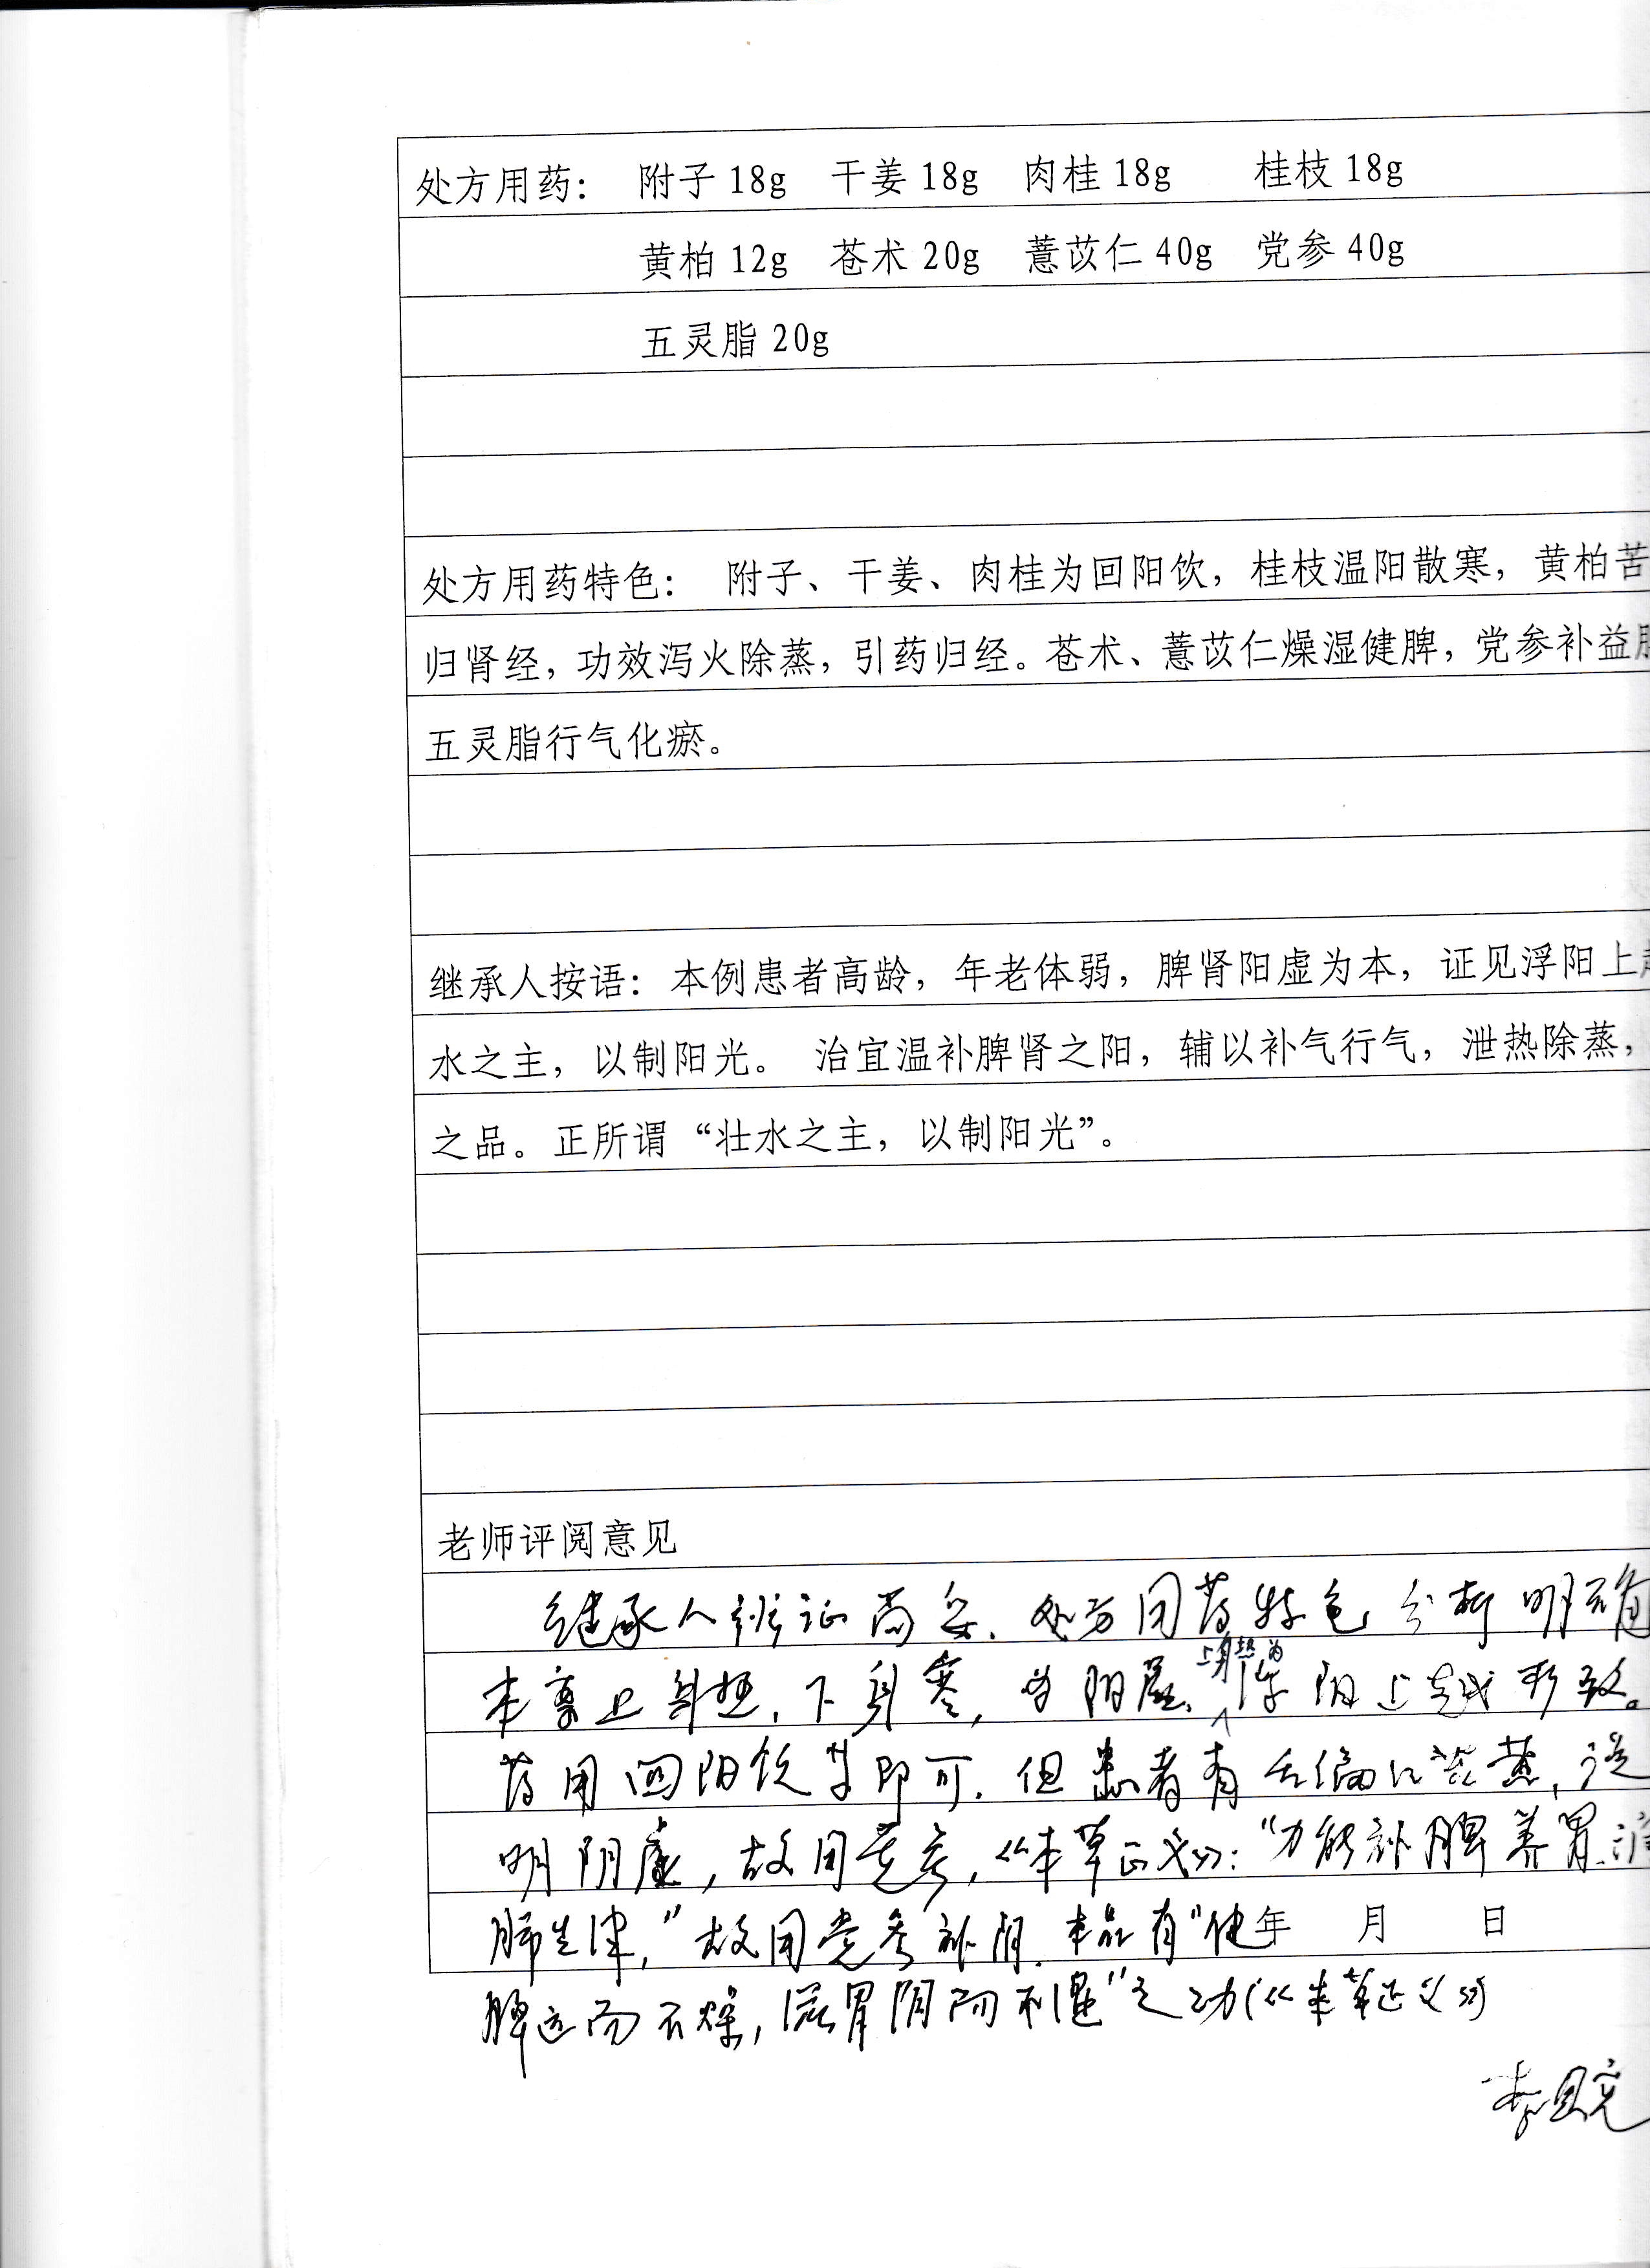 处方用药： 附子 18g 干姜 18g 肉桂 18g 桂枝 18g
黄柏 12g 苍术 20g 薏苡仁 40g 党参 40g
五灵脂 20g
处方用药特色： 附子、干姜、肉桂为回阳饮，桂枝温阳散寒，黄柏苦
归肾经，功效泻火除蒸，引药归经。苍术、薏苡仁燥湿健脾，党参补益
五灵脂行气化瘀。
继承人按语：本例患者高龄，年老体弱，脾肾阳虚为本，证见浮阳上
水之主，以制阳光。 治宜温补脾肾之阳，辅以补气行气，泄热除蒸，
之品。正所谓“壮水之主，以制阳光”。
老师评阅意见
继承人辨证尚妥．处方用药特色分析明确
上身热为
本案上身热，下身寒，为阳虚、浮阳上越所致。
药用回阳饮等即可．但患者有舌偏红苔黄，说
明阴虚，故用党参，《本草正义》：“力能补脾养胃．润
肺生津，”故用党参补阴．本品有“健
年 月 日
脾运而不燥，滋胃阴而不湿”之功（《本草正义》）